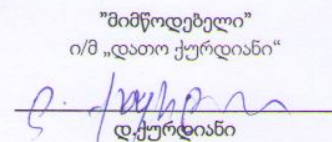 "მიმწოდებელი"
ი/მ „დათო ქურდიანი“
დ.ქურდიანი